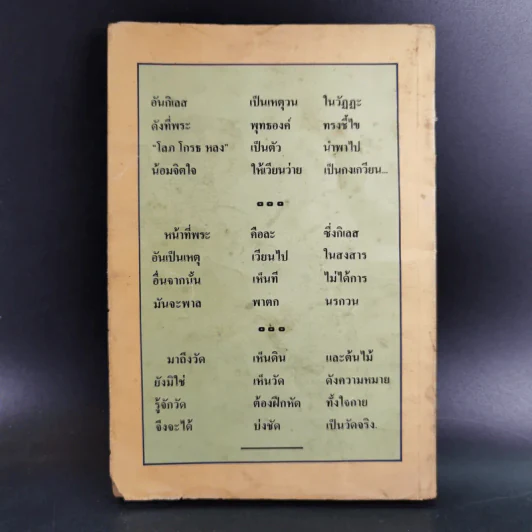 อันกิเลส เป็นเหตุวน ในวัฏฏะ
ดังที่พระ พุทธองค์ ทรงชี้ไข
"โลภ โกรธ หลง" เป็นตัว นำพาไป
น้อมจิตใจ ให้เวียนว่าย เป็นกงเกวียน...
๐๐๐
หน้าที่พระ คือละ ซึ่งกิเลส
อันเป็นเหตุ เวียนไป ในสงสาร
อื่นจากนั้น เห็นที ไม่ได้การ
มันจะพาล พาตก นรกวน
๐๐๐
มาถึงวัด เห็นดิน และต้นไม้
ยังมิใช่ เห็นวัด ดังความหมาย
รู้จักวัด ต้องฝึกหัด ทั้งใจกาย
จึงจะได้ บ่งชัด เป็นวัดจริง.